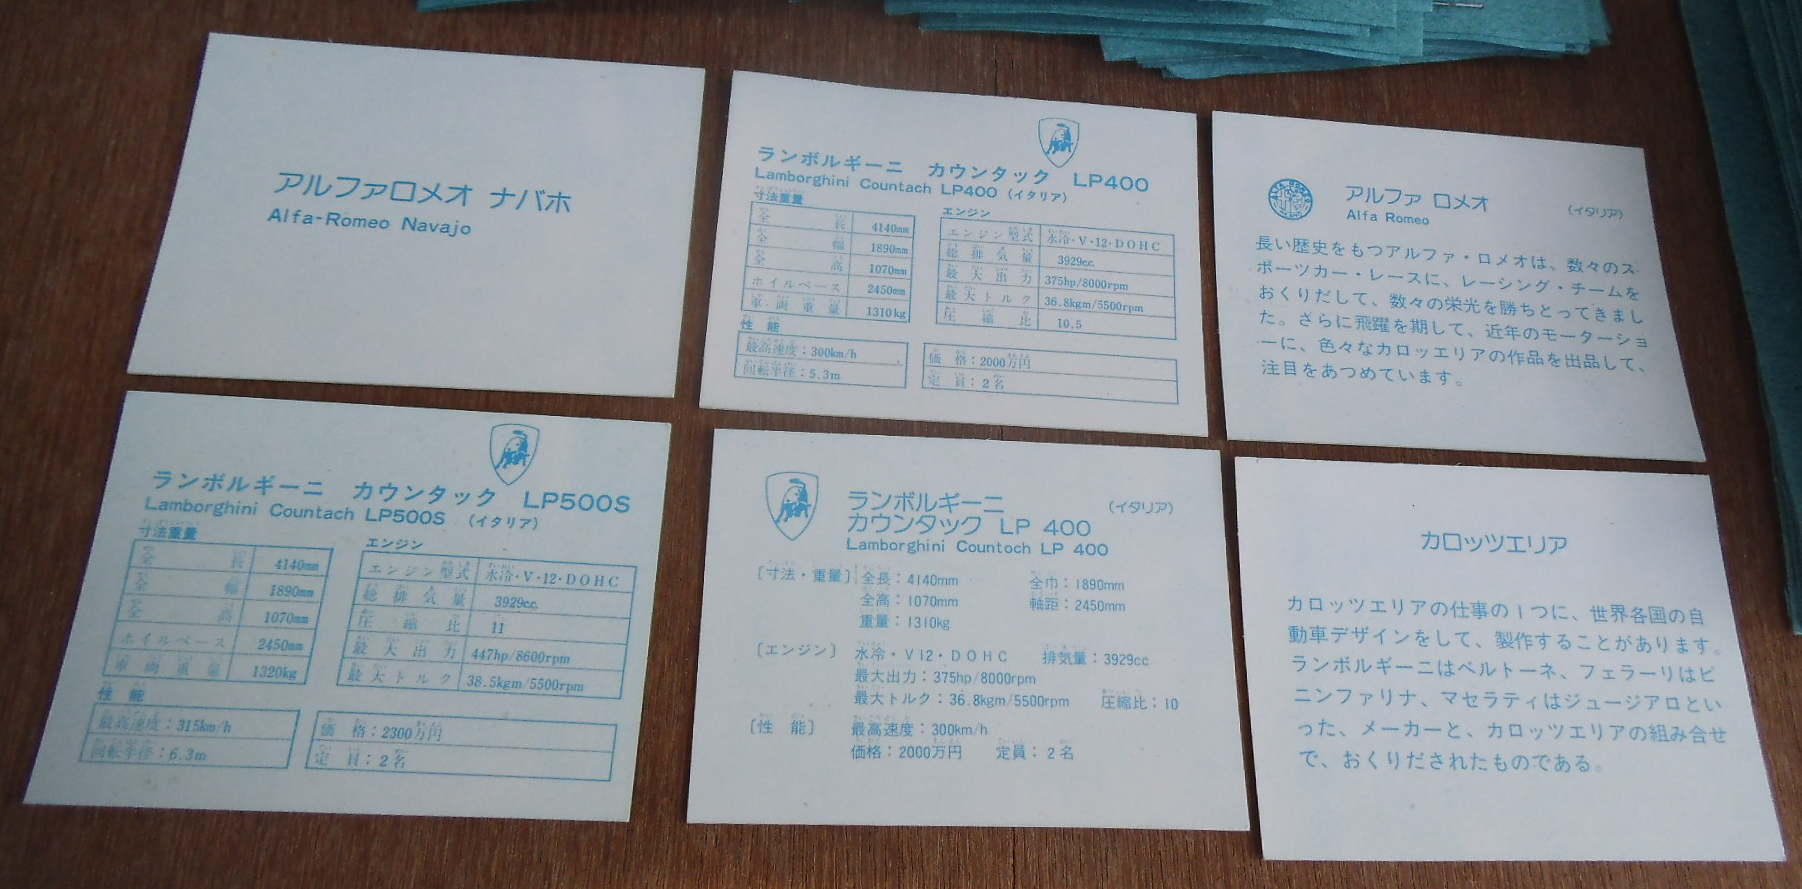 アルファロメオ ナバホ
Alfa-Romeo Navajo
ランボルギーニ カウンタック LP400
Lamborghini Countach LP400 (イタリア)
寸法重量
全長 4140mm
全幅 1890mm
全高 1070mm
ホイルベース 2450mm
車両重量 1310kg
エンジン
エンジン型式 水冷・V・12・DOHC
総排気量 3929cc
最大出力 375hp/8000rpm
最大トルク 36.8kgm/5500rpm
圧縮比 10.5
性能
最高速度:300km/h
回転半径:5.3m
価格:2000万円
定員:2名
アルファ ロメオ (イタリア)
Alfa Romeo
長い歴史をもつアルファ・ロメオは、数々のス
ポーツカー・レースに、レーシング・チームを
おくりだして、数々の栄光を勝ちとってきまし
た。さらに飛躍を期して、近年のモーターショ
ーに、色々なカロッエリアの作品を出品して、
注目をあつめています。
ランボルギーニ カウンタック LP500S
Lamborghini Countach LP500S (イタリア)
寸法重量
全長 4140mm
全幅 1890mm
全高 1070mm
ホイルベース 2450mm
車両重量 1320kg
エンジン
エンジン型式 水冷・V・12・DOHC
総排気量 3929cc
圧縮比 11
最大出力 447hp/8600rpm
最大トルク 38.5kgm/5500rpm
性能
最高速度:315km/h
回転半径:6.3m
価格:2300万円
定員:2名
ランボルギーニ (イタリア)
カウンタック LP 400
Lamborghini Countoch LP 400
〔寸法・重量〕 全長:4140mm 全巾:1890mm
全高:1070mm 軸距:2450mm
重量:1310kg
〔エンジン〕 水冷・V12・DOHC 排気量:3929cc
最大出力:375hp/8000rpm
最大トルク:36.8kgm/5500rpm 圧縮比:10
〔性能〕 最高速度:300km/h
価格:2000万円 定員:2名
カロッツエリア
カロッツエリアの仕事の1つに、世界各国の自
動車デザインをして、製作することがあります。
ランボルギーニはベルトーネ、フェラーリはピ
ニンファリナ、マセラティはジュージアロとい
った、メーカーと、カロッツエリアの組み合せ
で、おくりだされたものである。